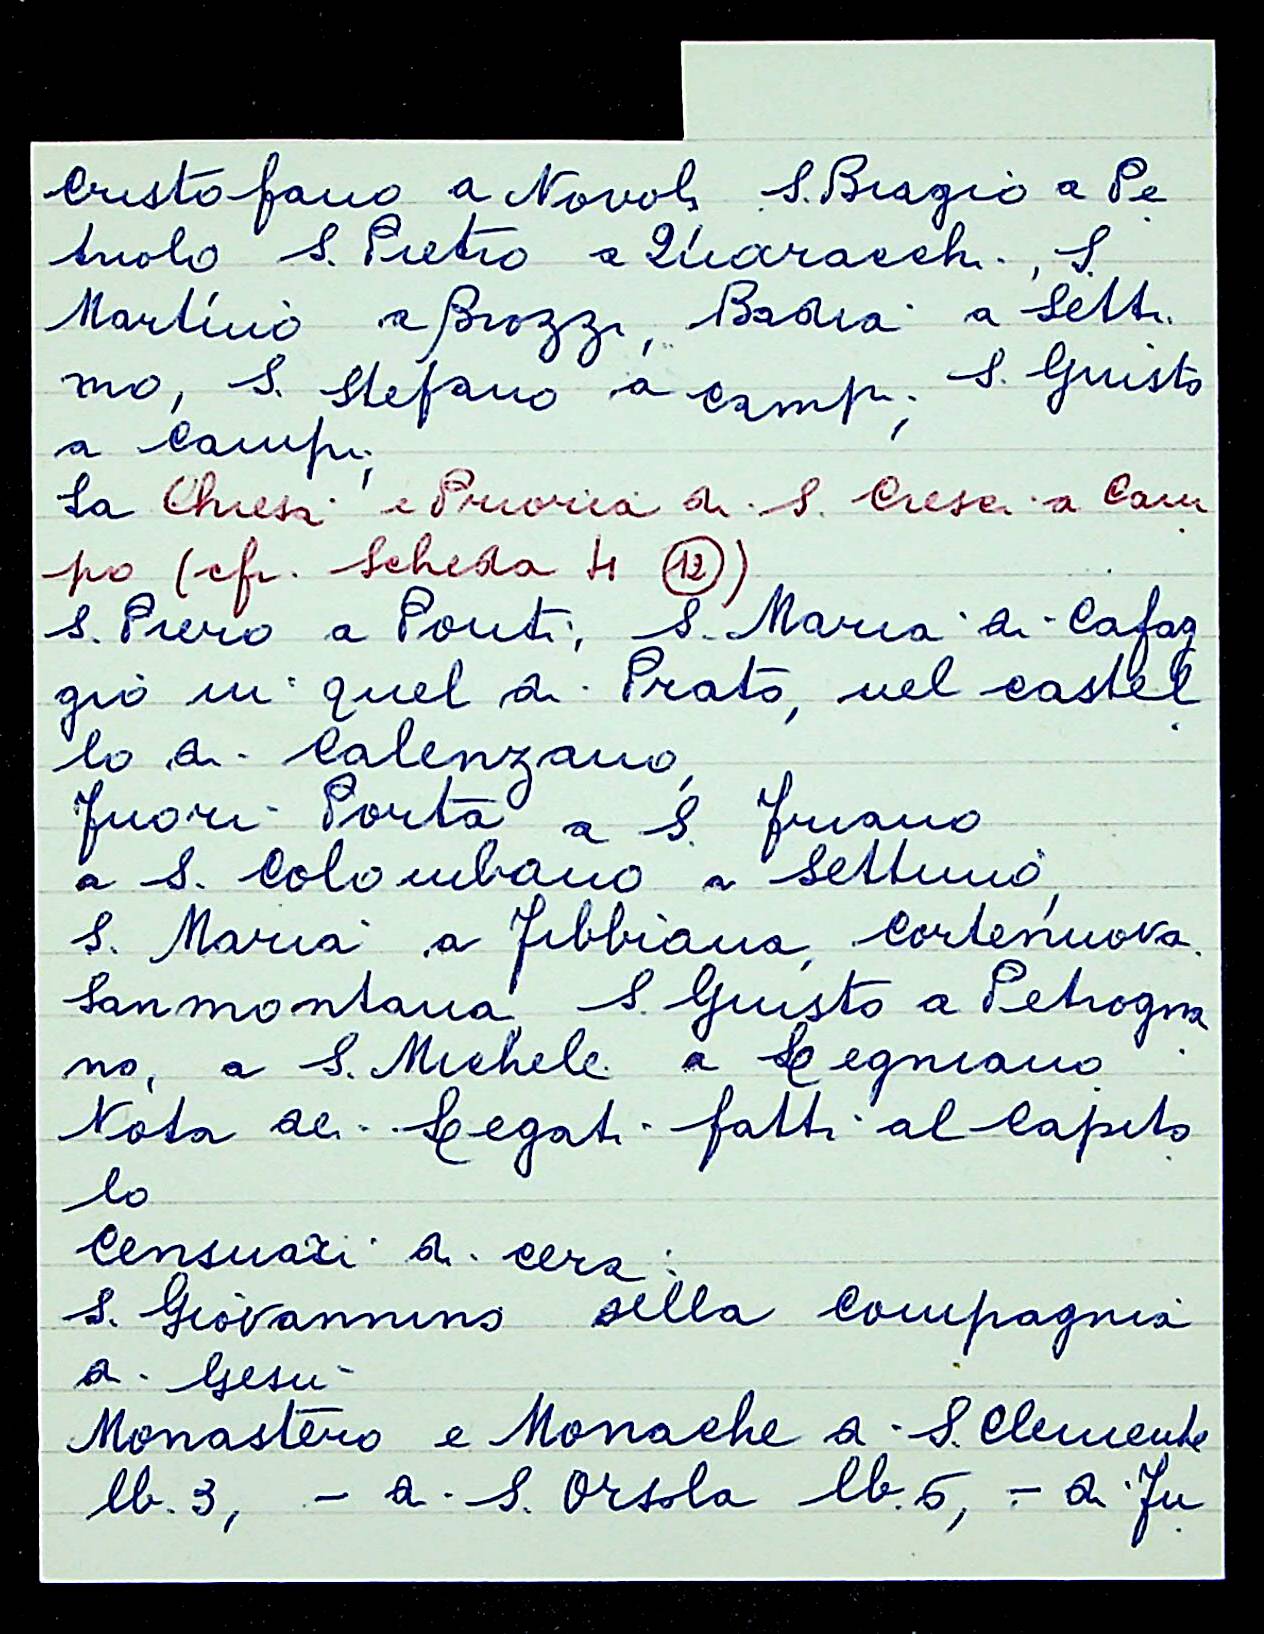 Cristofano a Novoli S. Biagio a Pe
truolo S. Pietro a Quaracchi, S.
Martino a Brozzi, Badia a Setti
mo, S. Stefano a Campi, S. Giusto
a Campi,
La Chiesa e Prioria di S. Cresci a Cam
po (cfr. Scheda 4 12)
S. Piero a Ponti, S. Maria di Cafag
gio in quel di Prato, nel castel
lo di Calenzano,
Fuori Porta a S. Friano
a S. Colombano a Settimo,
S. Maria a Fibbiana, Cortenuova
Sanmontana S. Giusto a Petrogna
no, a S. Michele a Legniano
Nota dei Legati fatti al Capito
lo
Censuari di cera:
S. Giovannino della Compagnia
di Gesù
Monastero e Monache di S. Clemente
lb. 3, - di S. Orsola lb. 5, - di Fu